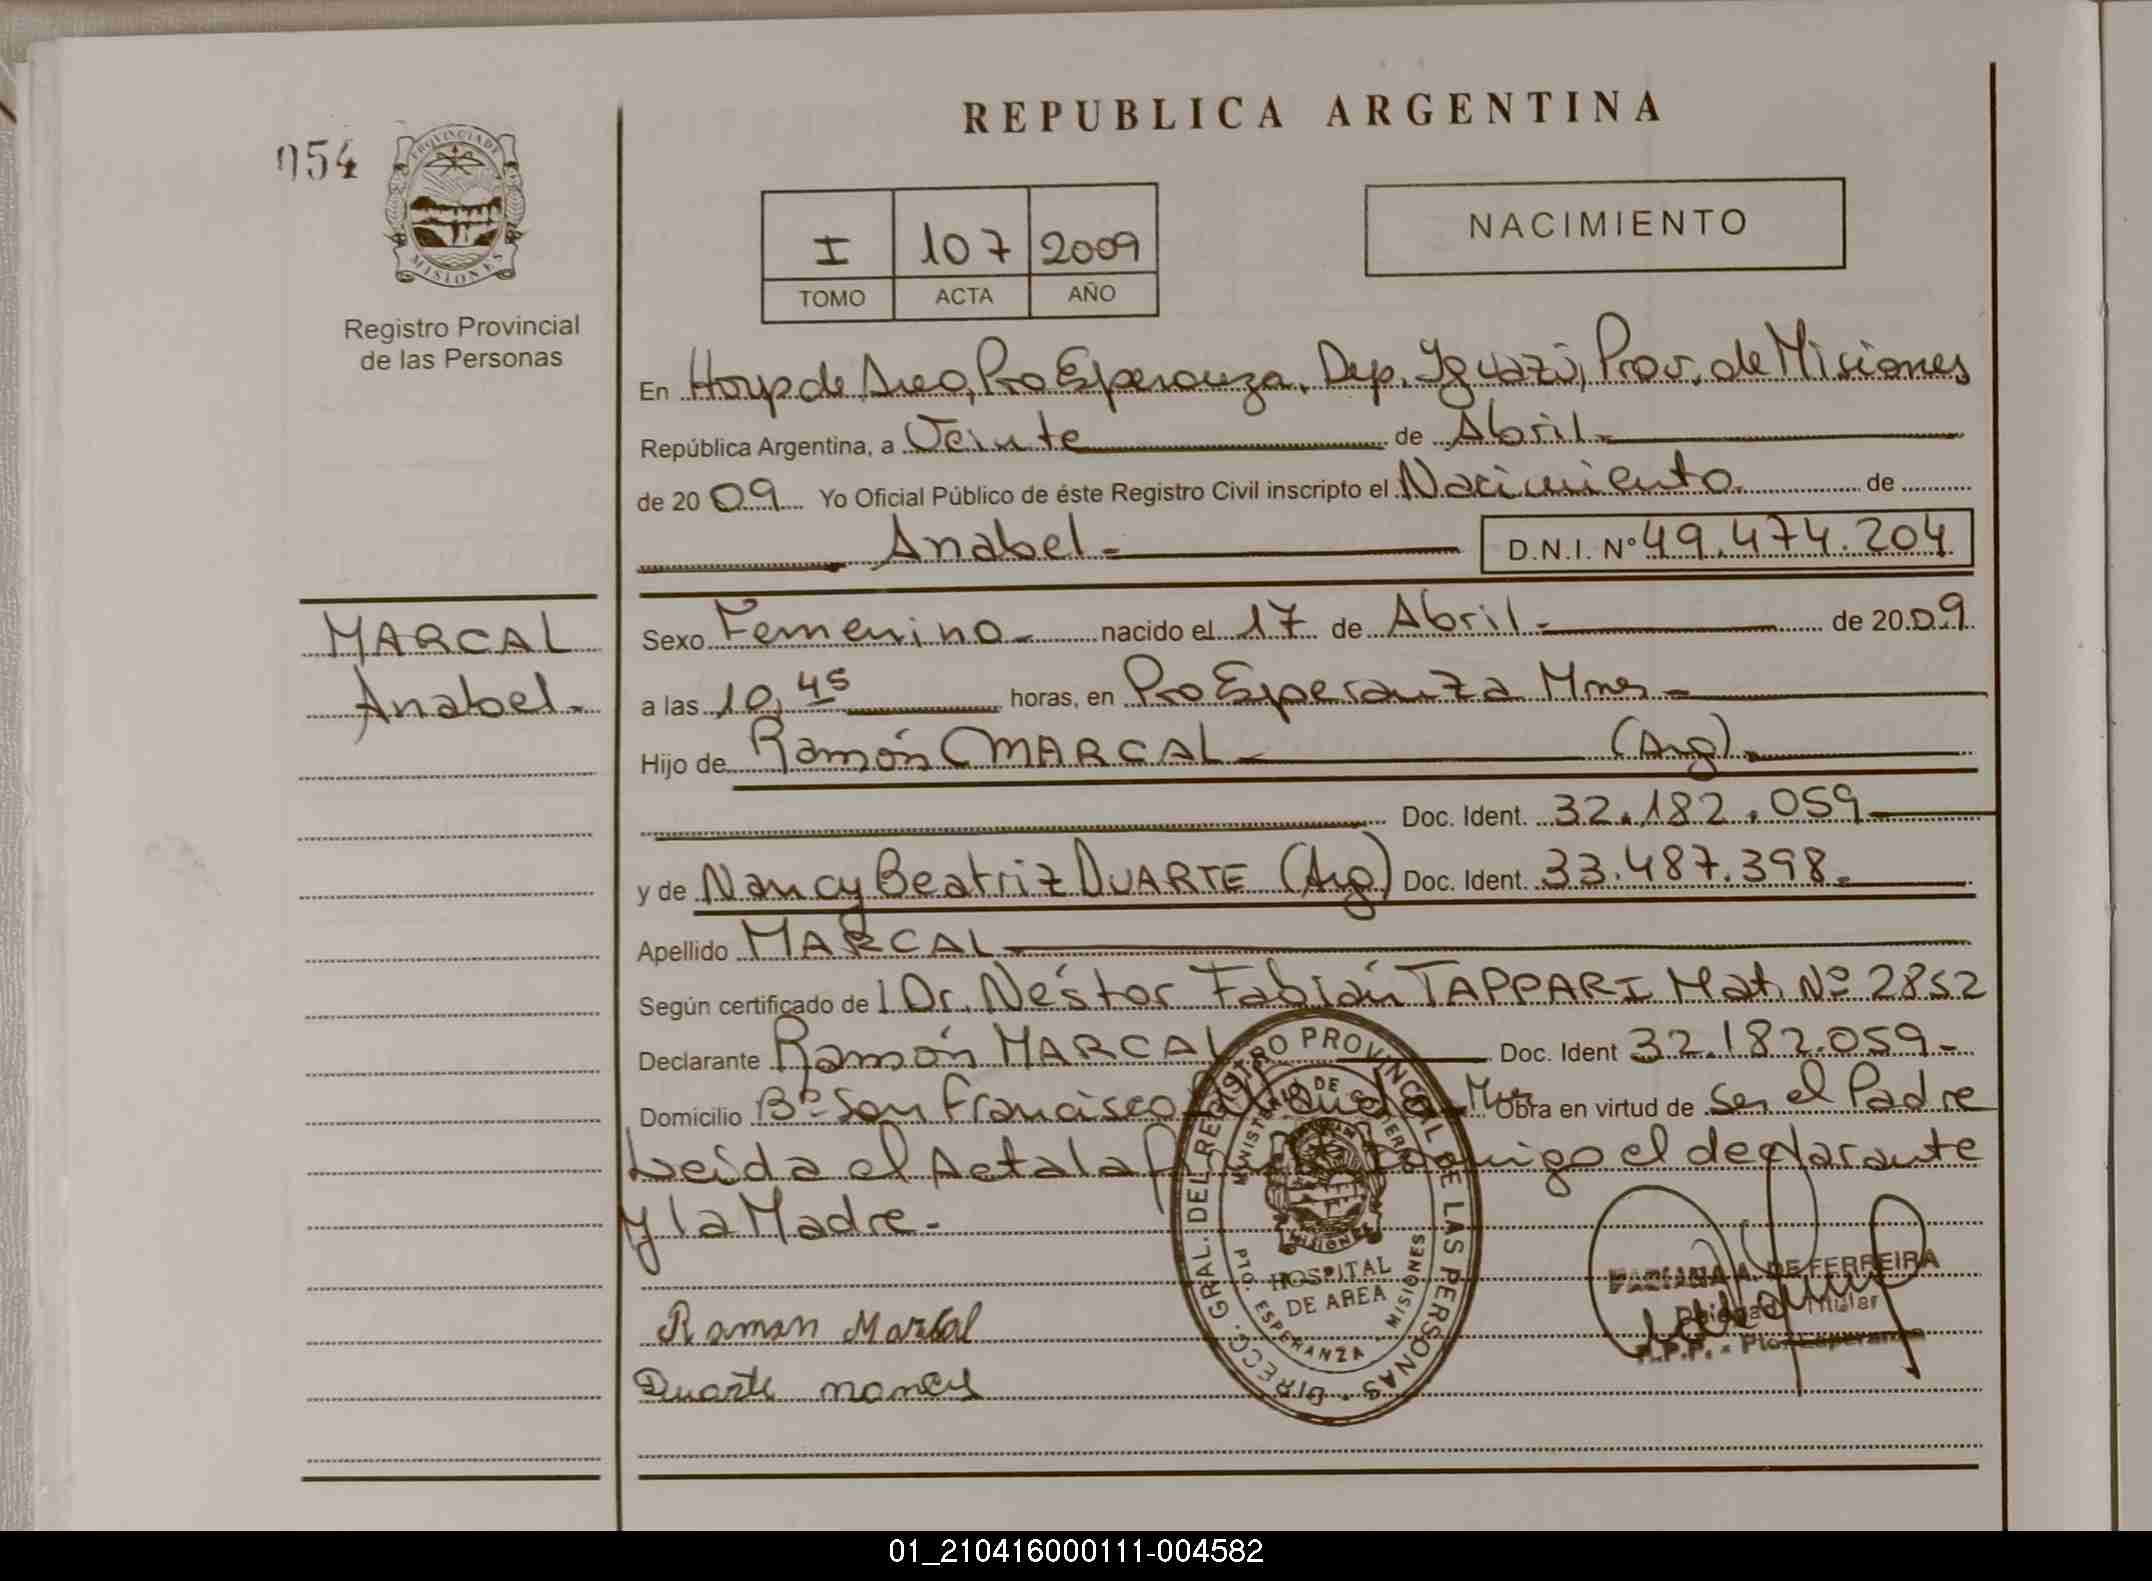 REPUBLICA ARGENTINA
054
PROVINCIA DE
MISIONES
Registro Provincial
de las Personas
I 107 2009
TOMO ACTA AÑO
NACIMIENTO
En Hosp de Area, Pto Esperanza, Dep. Iguazú, Prov. de Misiones
República Argentina, a Veinte de Abril
de 2009 Yo Oficial Público de éste Registro Civil inscripto el Nacimiento de
Anabel D.N.I. Nº 49.474.204
MARCAL
Anabel
Sexo Femenino nacido el 17 de Abril de 2009
a las 10,45 horas, en Pto Esperanza Mnes
Hijo de Ramón MARCAL (Arg)
Doc. Ident. 32.182.059
y de Nancy Beatriz DUARTE (Arg) Doc. Ident. 33.487.398
Apellido MARCAL
Según certificado de l Dr. Néstor Fabián TAPPARI Mat Nº 2852
Declarante Ramón MARCAL Doc. Ident 32.182.059
Domicilio Bº San Francisco Obra en virtud de Ser el Padre
Leída el Acta la conmigo el declarante
y la Madre
DIRECC. GRAL. DEL REGISTRO PROVINCIAL DE LAS PERSONAS
MINISTERIO DE GOBIERNO
MISIONES
HOSPITAL
DE AREA
PTO. ESPERANZA - MISIONES
Ramon Marcal
Duarte nancy
A. DE FERREIRA
Titular
R.P.P. - Pto. Esperanza
01_210416000111-004582